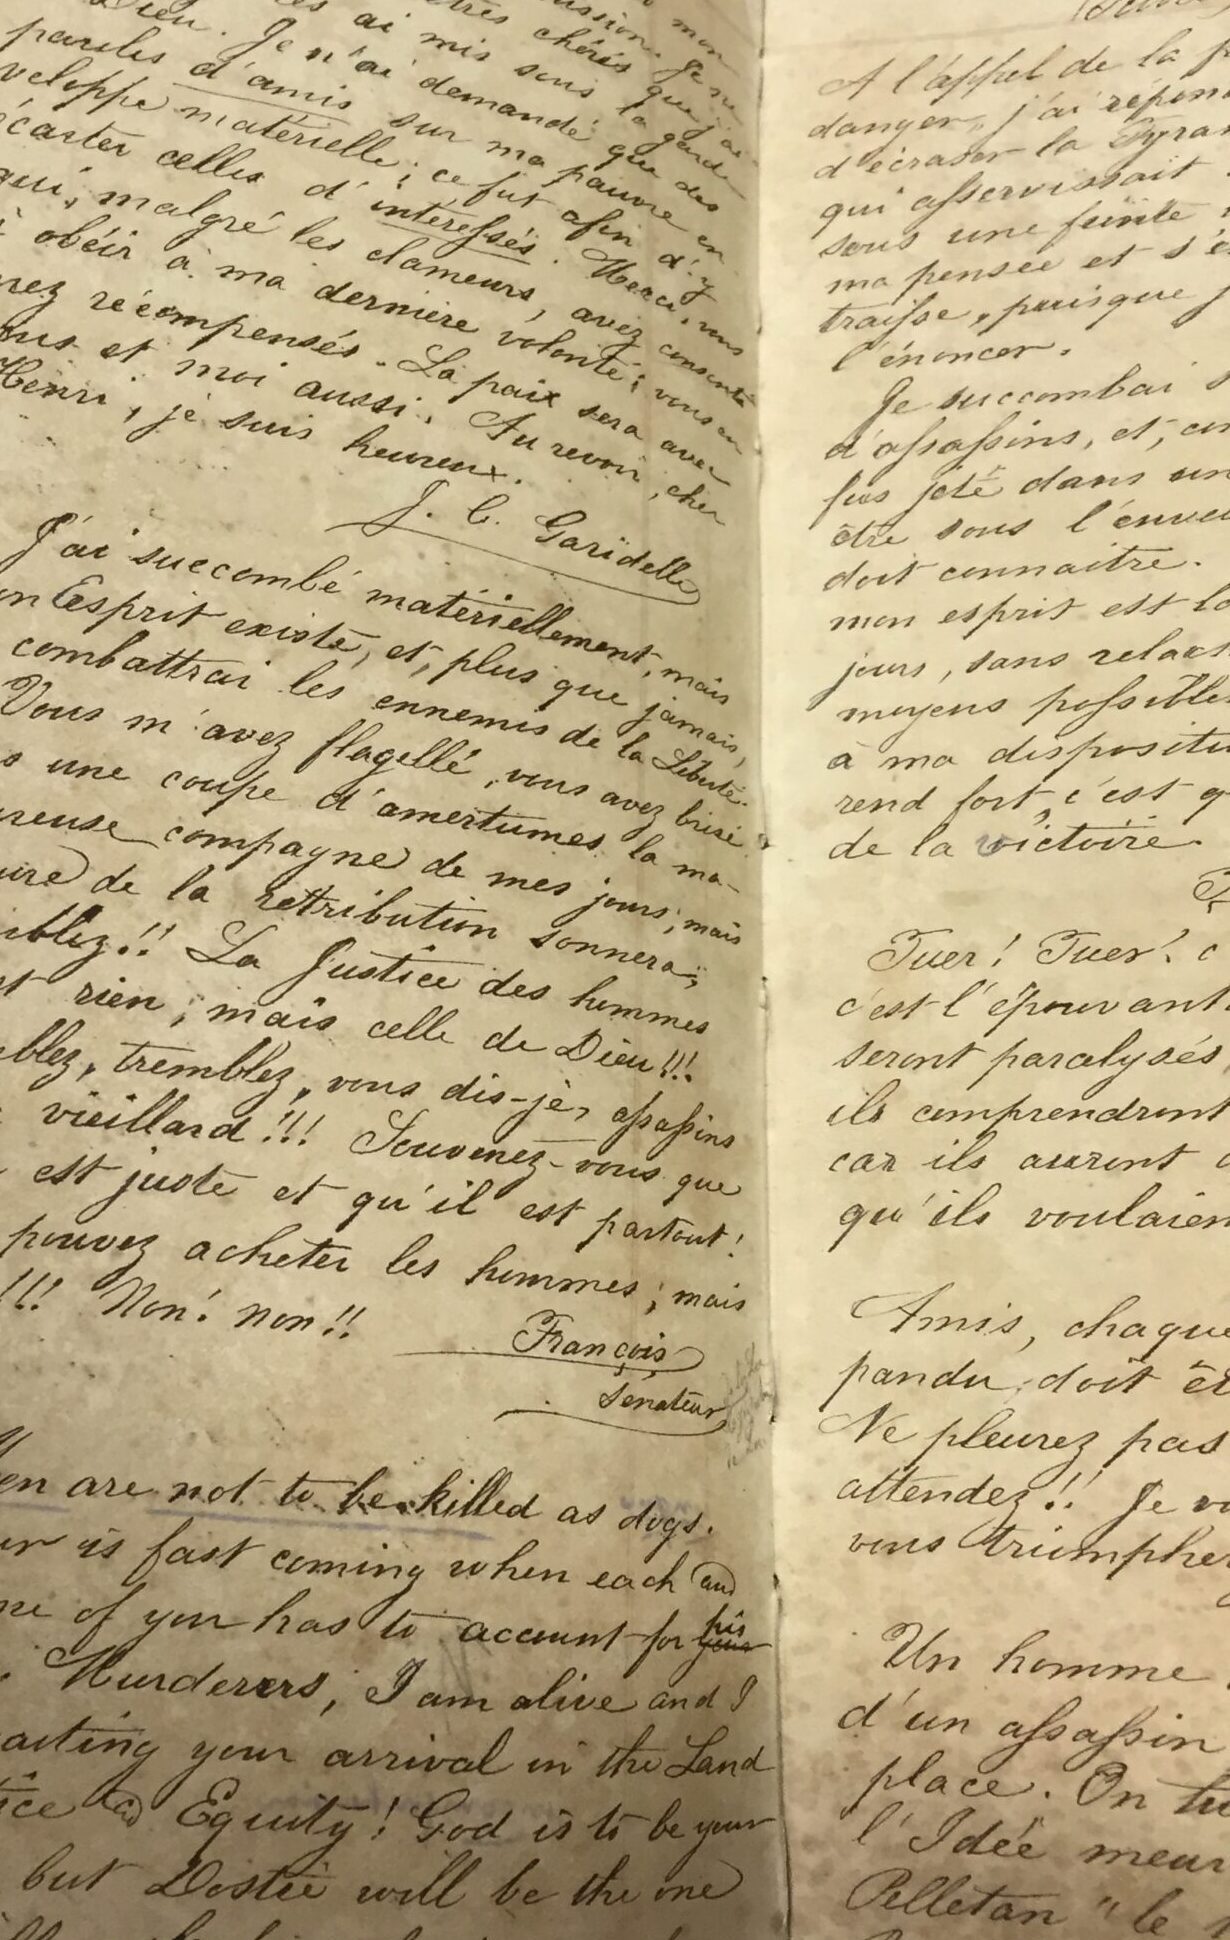 mon
mission. Je ne
êtres chéris que j'ai
ai mis sous la garde
Dieu. Je n'ai demandé que des
paroles d'amis sur ma pauvre en
veloppe matérielle; ce fut afin d'y
écarter celles d'intéressés. Merci, vous
qui, malgré les clameurs, avez consenti
à obéir à ma dernière volonté; vous en
serez récompensés. La paix sera avec
vous et moi aussi. Au revoir, cher
Henri, je suis heureux.
J. C. Garidelle
J'ai succombé matériellement, mais
mon Esprit existe, et, plus que jamais,
combattrai les ennemis de la Liberté.
Vous m'avez flagellé, vous avez brisé
s une coupe d'amertumes la ma-
reuse compagne de mes jours; mais
de la rétribution sonnera;
blez!! La Justice des hommes
t rien; mais celle de Dieu!!!
blez, tremblez, vous dis-je, assassins
vieillard!!! Souvenez-vous que
est juste et qu'il est partout!
pouvez acheter les hommes; mais
!!! Non! non!!
François
Senateur
en are not to be killed as dogs.
ur is fast coming when each and
ne of you has to account for his
your
Murderers, I am alive and I
aiting your arrival in the Land
ice & Equity! God is to be your
but Dostie will be the one
A l'appel de la p
danger, j'ai répon
d'écraser la Tyran
qui asservissait
sous une feinte
ma pensée et s'é
traisse, puisque j
l'énoncer.
Je succombai
d'assassins, et, com
fus jeté dans un
être sous l'enve
doit connaitre.
mon esprit est là
jours, sans relach
moyens possibles
à ma dispositi
rend fort, c'est q
de la victoire.
Tuer! Tuer! c
c'est l'épouvant
seront paralysés,
ils comprendront
car ils auront
qu'ils voulaien
Amis, chaque
pandu doit êt
Ne pleurez pas
attendez!! Je vo
vous triomphe
Un homme
d'un assassin
place. On tu
l'Idée meur
Pelletan "le